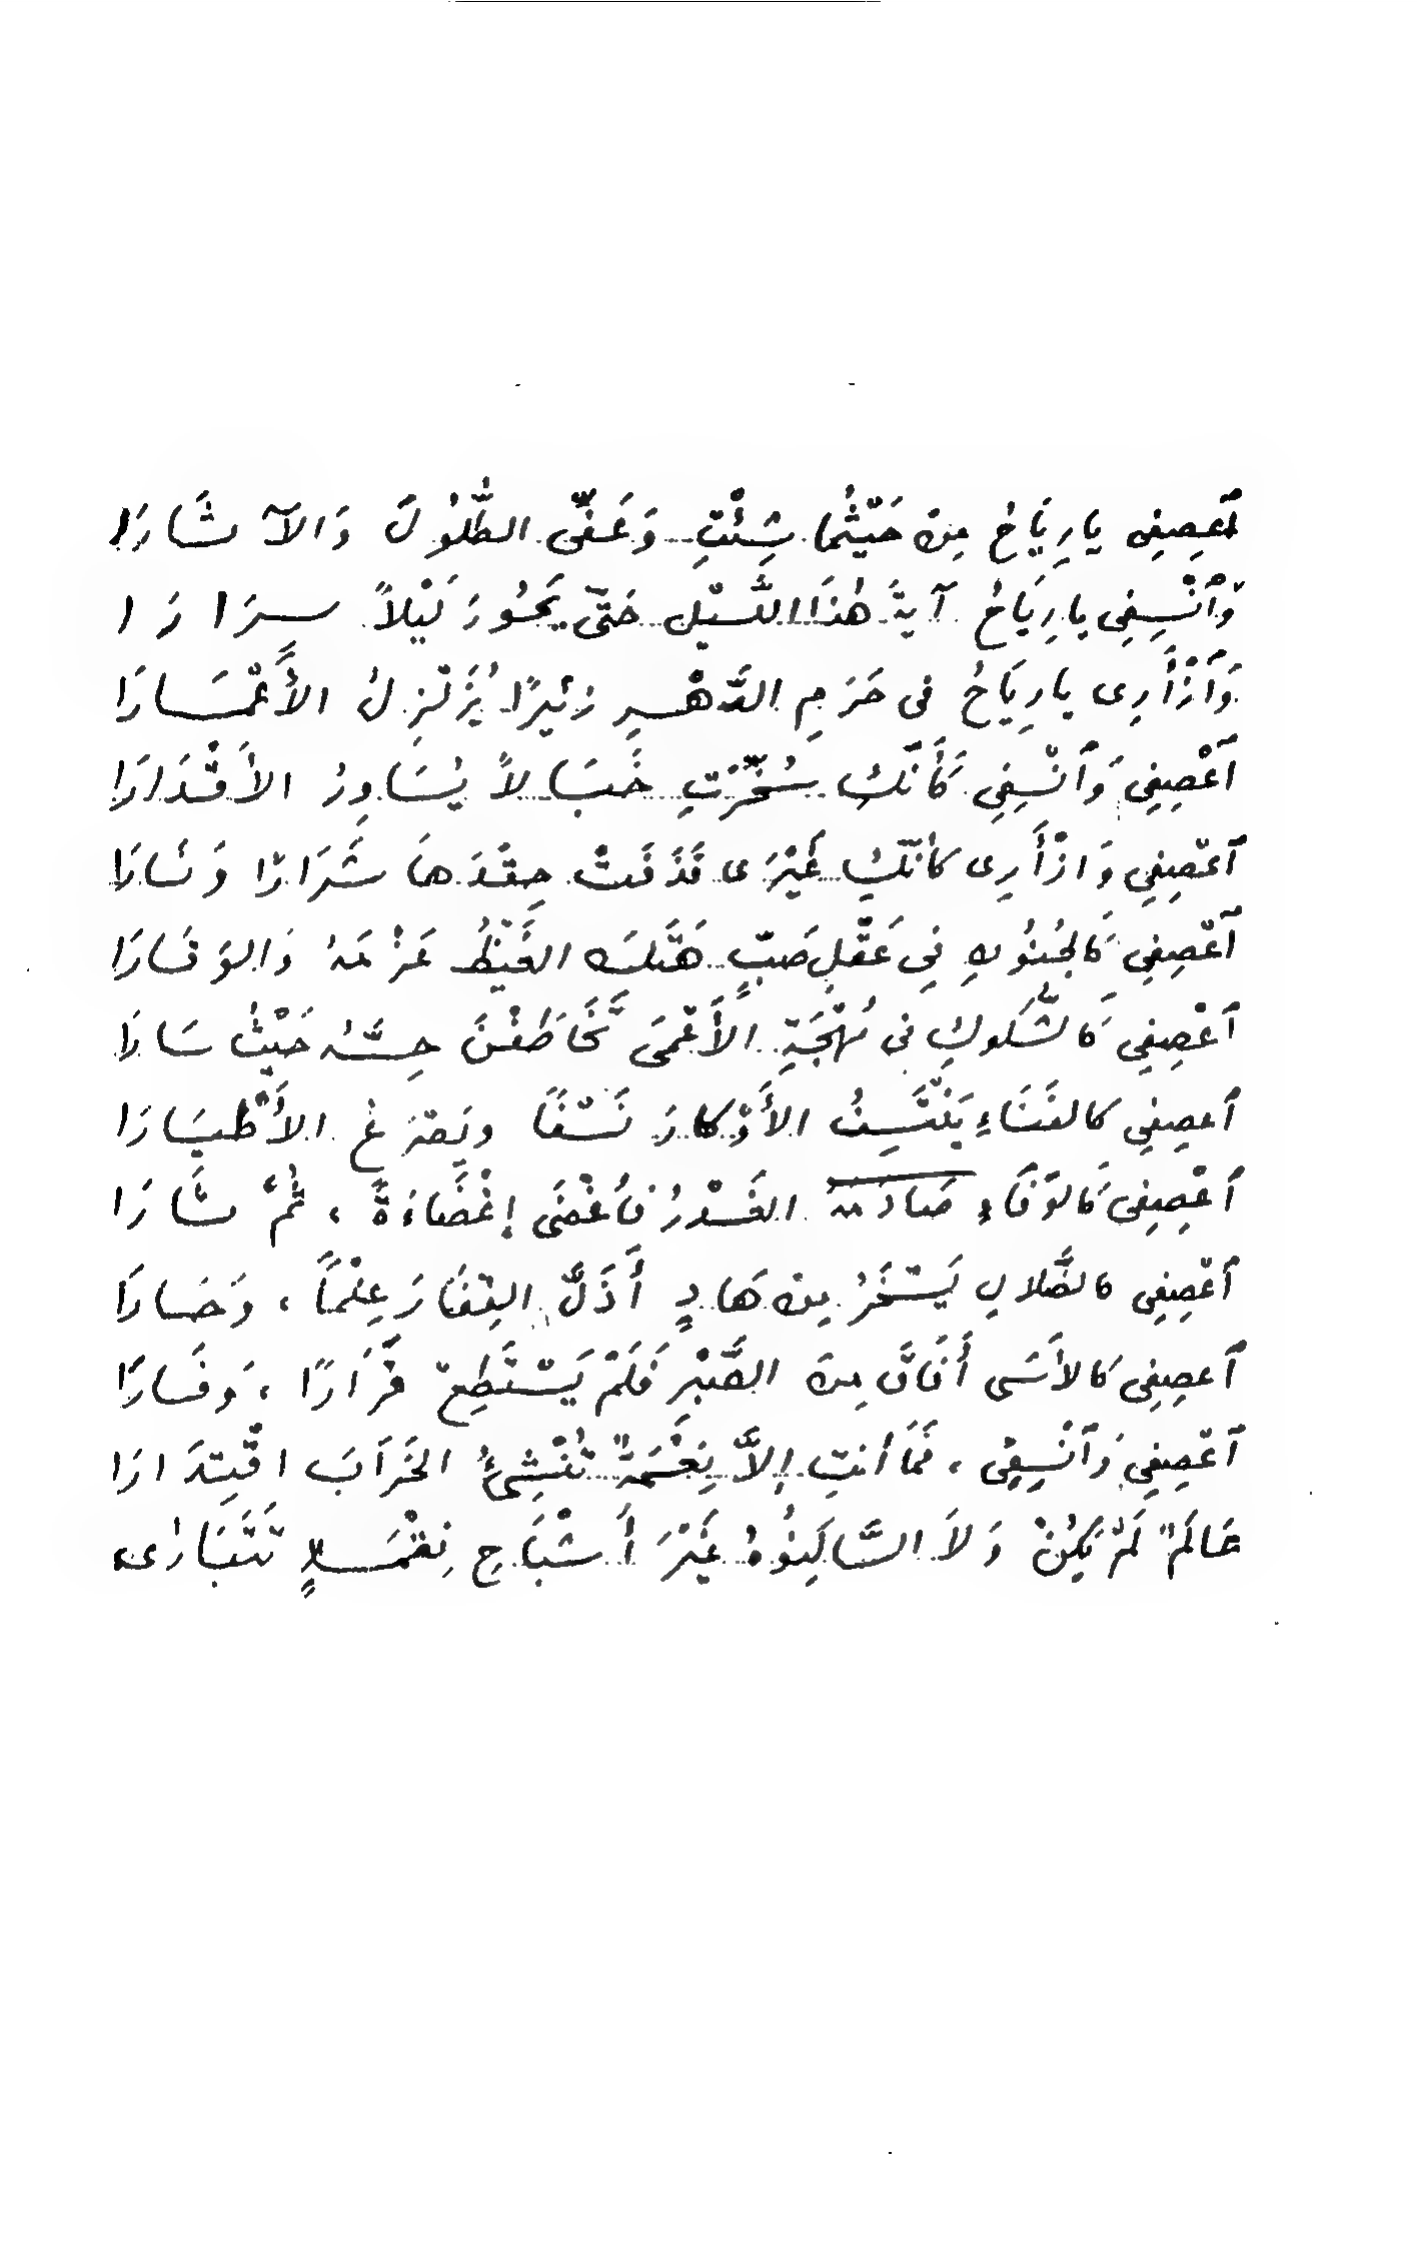 ٱعصِفِى يا رِيَاحُ مِنْ حَيْثُما شِئْتِ وَعَفِّى الطُّلُولَ وَالآثَارَا
وَٱنْسِفِى يا رِيَاحُ آيةَ هٰذَا اللَّيْلِ حَتَّى يَحُورَ لَيْلاً سِرَارَا
وَٱزْأَرِى يا رِيَاحُ فى حَرَمِ الدَّهْرِ زئيرًا يُزَلْزِلُ الأَعْمَارَا
ٱعْصِفِى وَٱنْسِفِى كَأَنَّكِ سُخِّرْتِ خَبَالاً يُسَاوِرُ الأَقْدَارَا
ٱعْصِفِى وَازْأَرِى كأنّكِ غَيْرَى قَذَفَتْ حِقْدَهاَ شَرَارًا وَنَارَا
ٱعْصِفِى كَالجُنُونِ فِى عَقْلِ صَبٍّ هَتَكَ الغَيْظُ عَزْمَهُ وَالوَقَارَا
ٱعْصِفِى كَالشُّكوكِ فى مُهْجَةِ الأَعْمَى تَخَاطَفْنَ حِسَّهُ حَيْثُ سَارَا
ٱعصِفِى كالفَنَاءِ يَنْتَسِفُ الأَوْكارَ نَسْفًا ويَصْرَعُ الأَطْيَارَا
ٱعْصِفِى كَالوَفَاءِ صَادَمَهُ الغَدْرُ فأَغْضَى إِغْضَاءَةً ، ثُمَّ ثَارَا
ٱعْصِفِى كالضَّلالِ يَسْخَرُ مِنْ هَادٍ أَذَلَّ القِفَارَ عِلْماً ، وَحَارَا
ٱعصِفِى كَالأَسَى أَفَاقَ مِنَ الصَّبْرِ فَلَمْ يَسْتَطِعْ قَرَارًا ، وَفَارَا
ٱعْصِفِى وَٱنْسِفِى ، فَمَا أنتِ إلاَّ نِعْمَةٌ تُنْشِئُ الخَرَابَ اقْتِدَارَا
عَالَمٌ لَمْ يَكُنْ وَلاَ السَّاكِنُوهُ غَيْرَ أَشْبَاحِ نِقْمَةٍ تَتَبَارَى